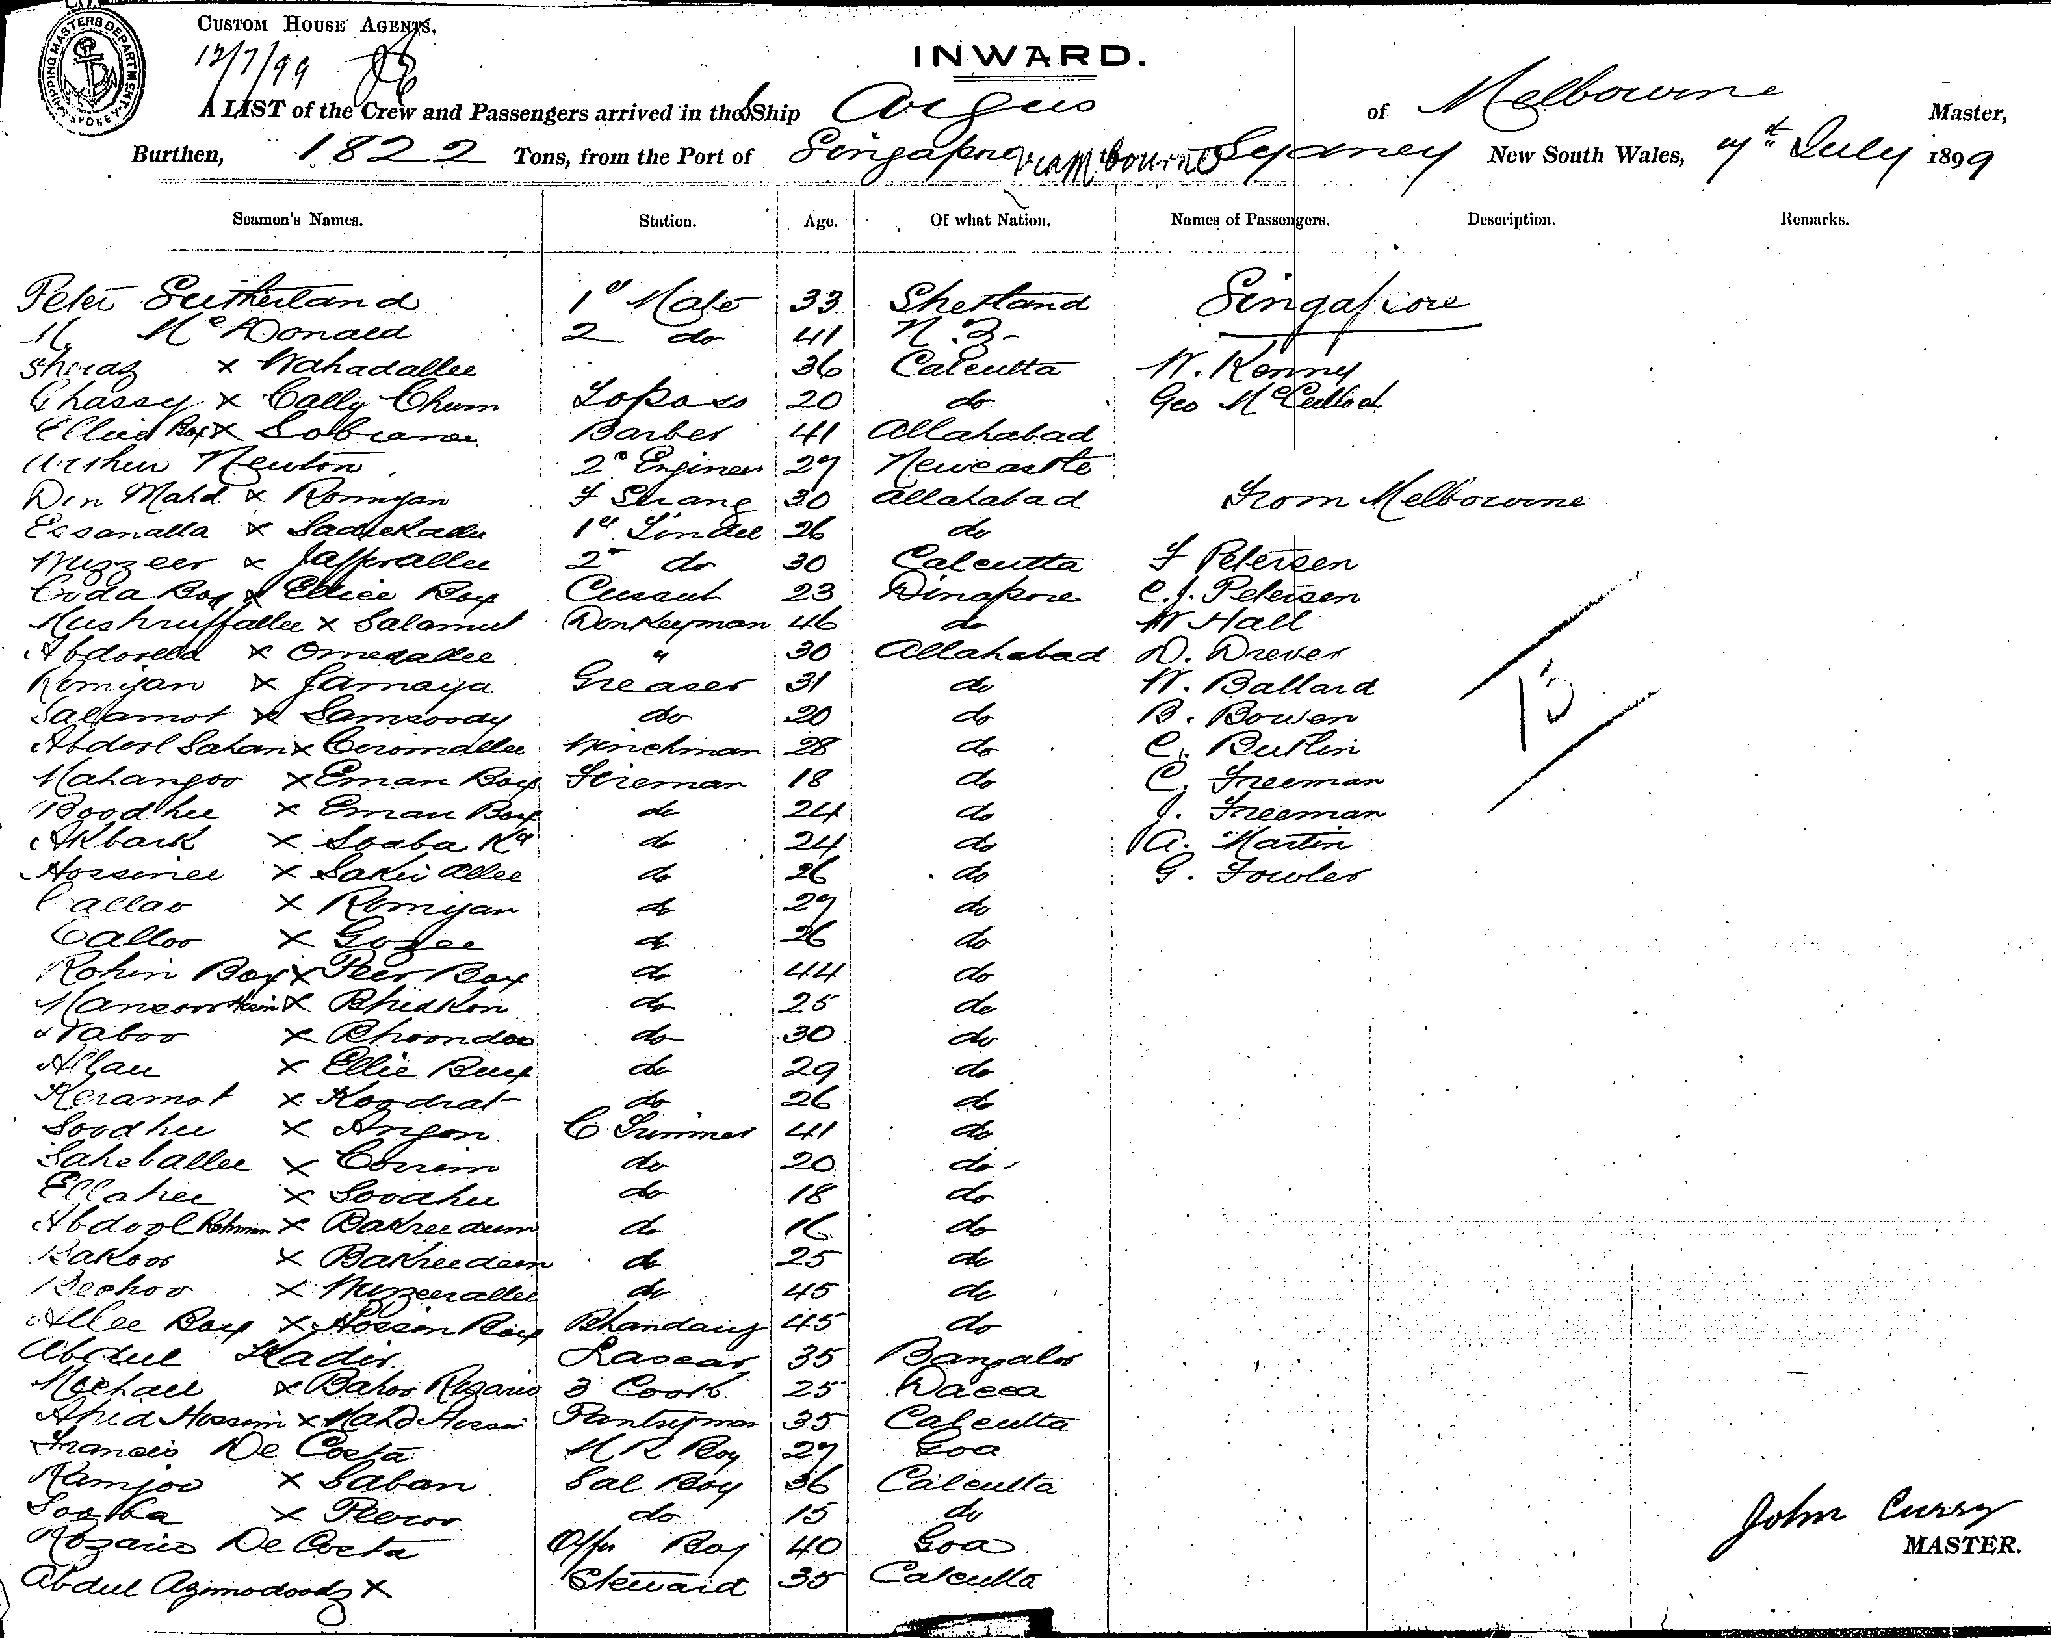 SHIPPING MASTERS DEPARTMENT SYDNEY
CUSTOM HOUSE AGENTS.
12/7/99
INWARD.
A LIST of the Crew and Passengers arrived in the Ship Argus of Melbourne Master,
Burthen, 1822 Tons, from the Port of Singapore via Mbourne Sydney New South Wales, 7th July 1899
Seamen's Names. Station. Age. Of what Nation. Names of Passengers. Description. Remarks.
Peter Sutherland 1st Mate 33 Shetland Singapore
Mc Donald 2 do 41 N.Z.
x Wahadallee 36 Calcutta W. Kenny
x Cally Churn Topass 20 do Geo McCulloch
Barber 41 Allahabad
Arthur Newton 2d Engineer 27 Newcastle
Din Mahd x Romyan F Serang 30 Allahabad From Melbourne
Essanalla x 1st Tindel 26 do
Muzzeer x Jafferallee 2 do 30 Calcutta F Petersen
Coda Box x Ellice Box Cussub 23 Dinapore C. J. Petersen
Mushruffallee x Salamut Donkeyman 46 do W Hall
x Omedallee " 30 Allahabad D. Drever
Romijan x Jamaya Greaser 31 do W. Ballard
Salamot x Samsoody do 20 do B. Bowen
x Coromallee Winchman 28 do C. Butlin
Mahangoo x Eman Box Fireman 18 do C. Freeman
Boodhee x Eman Box do 24 do J. Freeman
Akbark x do 24 do A. Martin
Hossinee x Sakir Allee do 26 do G. Fowler
Callao x Romijan do 27 do
Calloo x do 26 do
Rohin Box x Peer Box do 44 do
x Bhidkon do 25 do
Naboo x Bhoondoo do 30 do
Allau x Ellie Bux do 29 do
Keramot x Koodrat do 26 do
Soodhee x Angon C Trimmer 41 do
Saheballee x Corrim do 20 do
Ellahee x Soodhee do 18 do
Abdool Rohman x Bakreedum do 16 do
Bakoos x Bakreedem do 25 do
Bechoo x Muzzerallee do 45 do
Allee Box x Hossen Box Bhandary 45 do
Abdul Kadir Lascar 35 Bangalor
Michael x Baboo Rozario 3 Cook 25 Dacca
Abid Hossein x Mahd Hossein Pantryman 35 Calcutta
Francis De Costa M R Boy 27 Goa
Ramjoo x Saban Sal Boy 36 Calcutta
x Peeroo do 15 do
Rozario De Costa Offr Boy 40 Goa
Abdul x Steward 35 Calcutta
13
John Curry
MASTER.